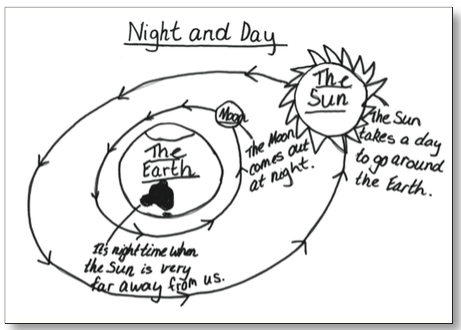 Night and Day
The
Sun
Moon
The
Earth
The Moon
comes out
at night.
the Sun
takes a day
to go around
the Earth.
It's night time when
the Sun is very
far away from us.